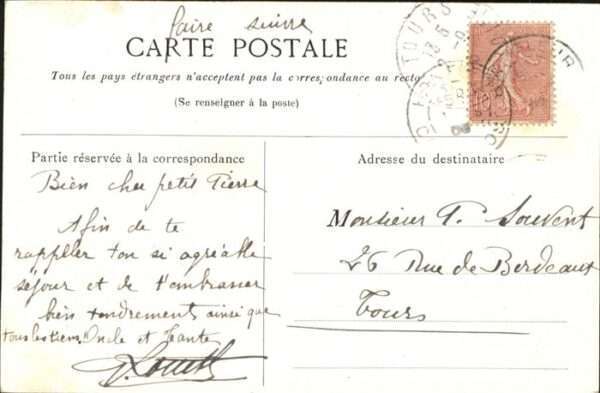 faire suivre
CARTE POSTALE
Tous les pays étrangers n'acceptent pas la correspondance au recto
(Se renseigner à la poste)
TOURS
Partie réservée à la correspondance
Bien cher petit Pierre
Afin de te
rappeller ton si agréable
séjour et de t'embrasser
bien tendrement ainsi que
tous les tiens. Oncle et Tante
Adresse du destinataire
Monsieur P. Souvent
26 Rue de Bordeaux
Tours